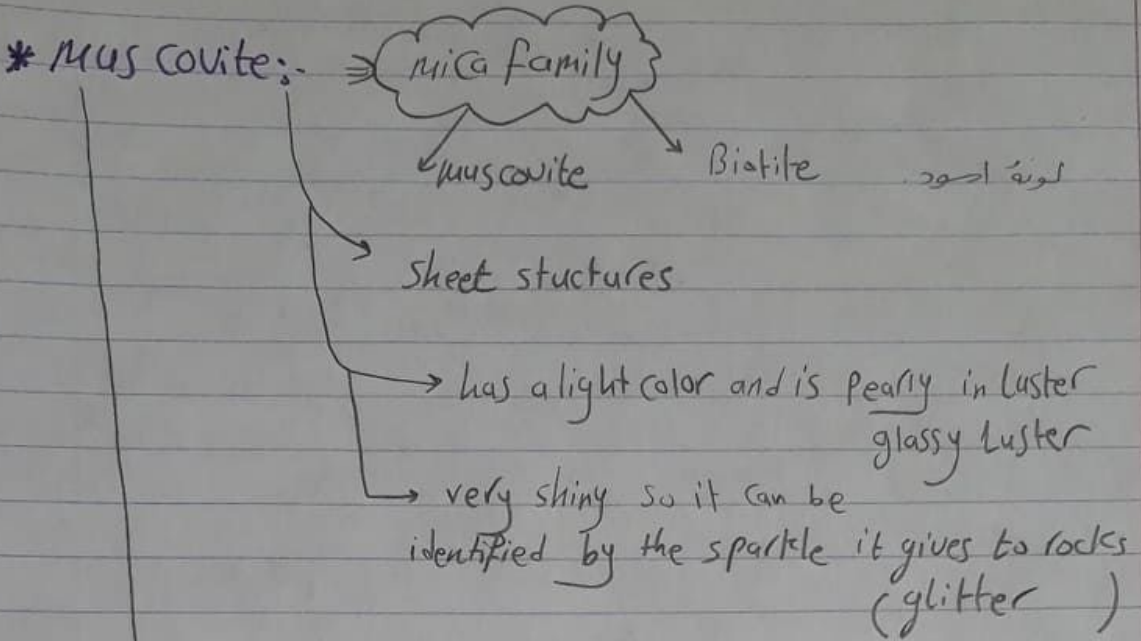 * Muscovite:- mica family
muscovite Biotite لونة اسود
sheet stuctures
has a light color and is pearly in luster
glassy luster
very shiny so it can be
identified by the sparkle it gives to rocks
(glitter )